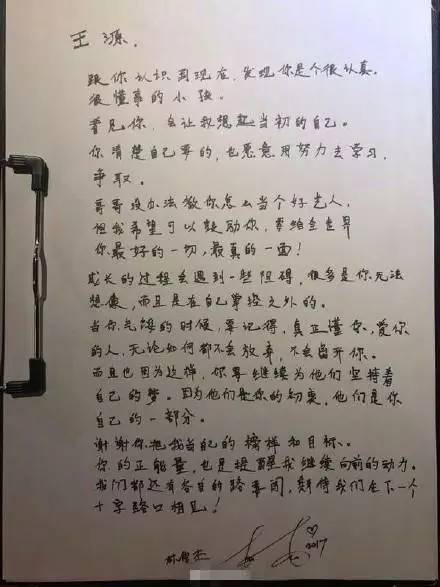 王源,
跟你认识到现在,发现你是个很认真,
很懂事的小孩。
看见你,会让我想起当初的自己。
你清楚自己要的,也愿意用努力去学习,
争取。
哥哥没办法教你怎么当个好艺人,
但我希望可以鼓励你,带给全世界
你最好的一切,最真的一面!
成长的过程会遇到一些阻碍,很多是你无法
想像,而且是在自己掌控之外的。
当你气馁的时候,要记得,真正懂你,爱你
的人,无论如何都不会放弃,不会离开你。
而且也因为这样,你要继续为他们坚持着
自己的梦。因为他们是你的约束,他们是你
自己的一部分。
谢谢你把我当自己的榜样和目标。
你的正能量,也是提醒我继续向前的动力。
我们都还有各自的路要闯,期待我们在下一个
十字路口相见!
林俊杰 2017